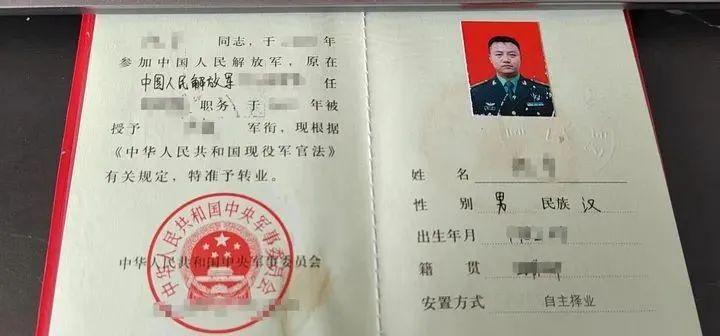 同志，于 年
参加中国人民解放军，原在
中国人民解放军 任
职务，于 年被
授予 军衔，现根据
《中华人民共和国现役军官法》
有关规定，特准予转业。
中华人民共和国中央军事委员会
中华人民共和国中央军事委员会
姓 名
性 别 男 民族 汉
出生年月
籍 贯
安置方式 自主择业